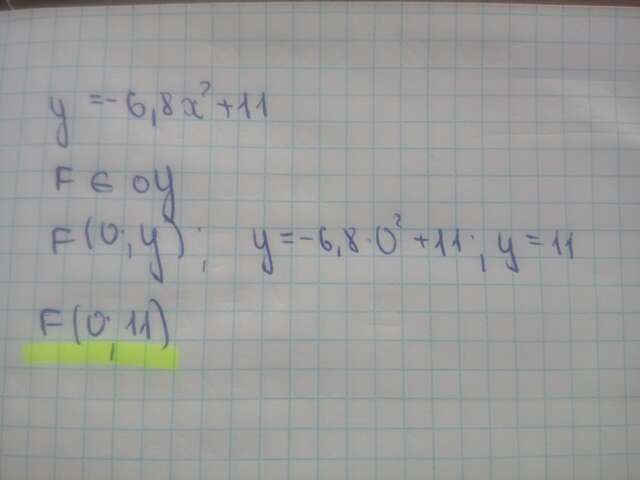 y = -6,8x² + 11
F ∈ oy
F(0; y); y = -6,8·0² + 11; y = 11
F(0; 11)